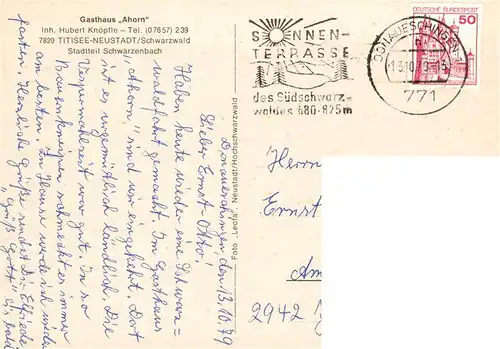 Gasthaus „Ahorn"
Inh. Hubert Knöpfle – Tel. (07657) 239
7820 TITISEE-NEUSTADT/Schwarzwald
Stadtteil Schwärzenbach
SONNEN-
TERRASSE
des Südschwarz-
waldes 680-875m
DONAUESCHINGEN 1
13.10.79-13
771
DEUTSCHE BUNDESPOST
50
Foto „Leofa" Neustadt/Hochschwarzwald
Donaueschingen, den 13.10.79
Lieber Ernst-Otto!
Haben heute wieder eine Schwarz-
waldfahrt gemacht. Im Gasthaus
„Ahorn" sind wir eingekehrt. Dort
ist es urgemütlich ländlich. Die
Vespermahlzeit war gut. In so
Bauernkneipen schmeckt es immer
am besten. Zu Hause werde ich wieder
fasten. Herzliche Grüße sendet Dir Elfriede
„Grüß Gott" bis bald
Herrn
Ernst
Am
2942